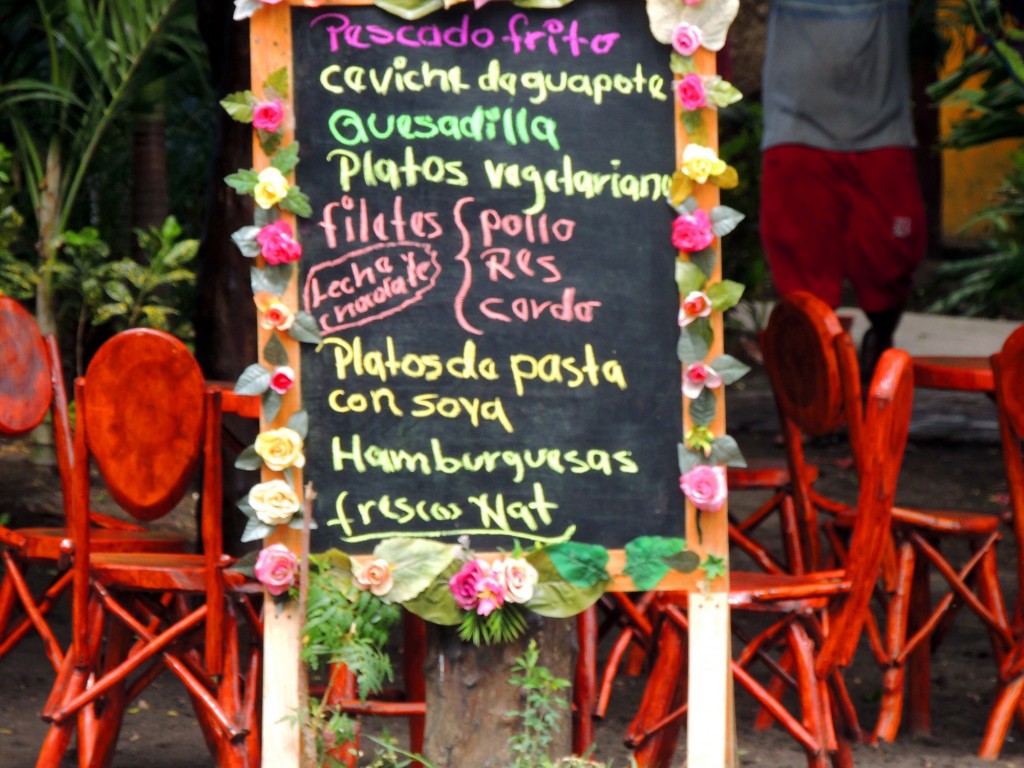 Pescado frito
caviche de guapote
Quesadilla
Platos vegetariano
filetes { pollo
Res
cerdo
Leche y
chocolate
Platos de pasta
con soya
Hamburguesas
frescos Nat